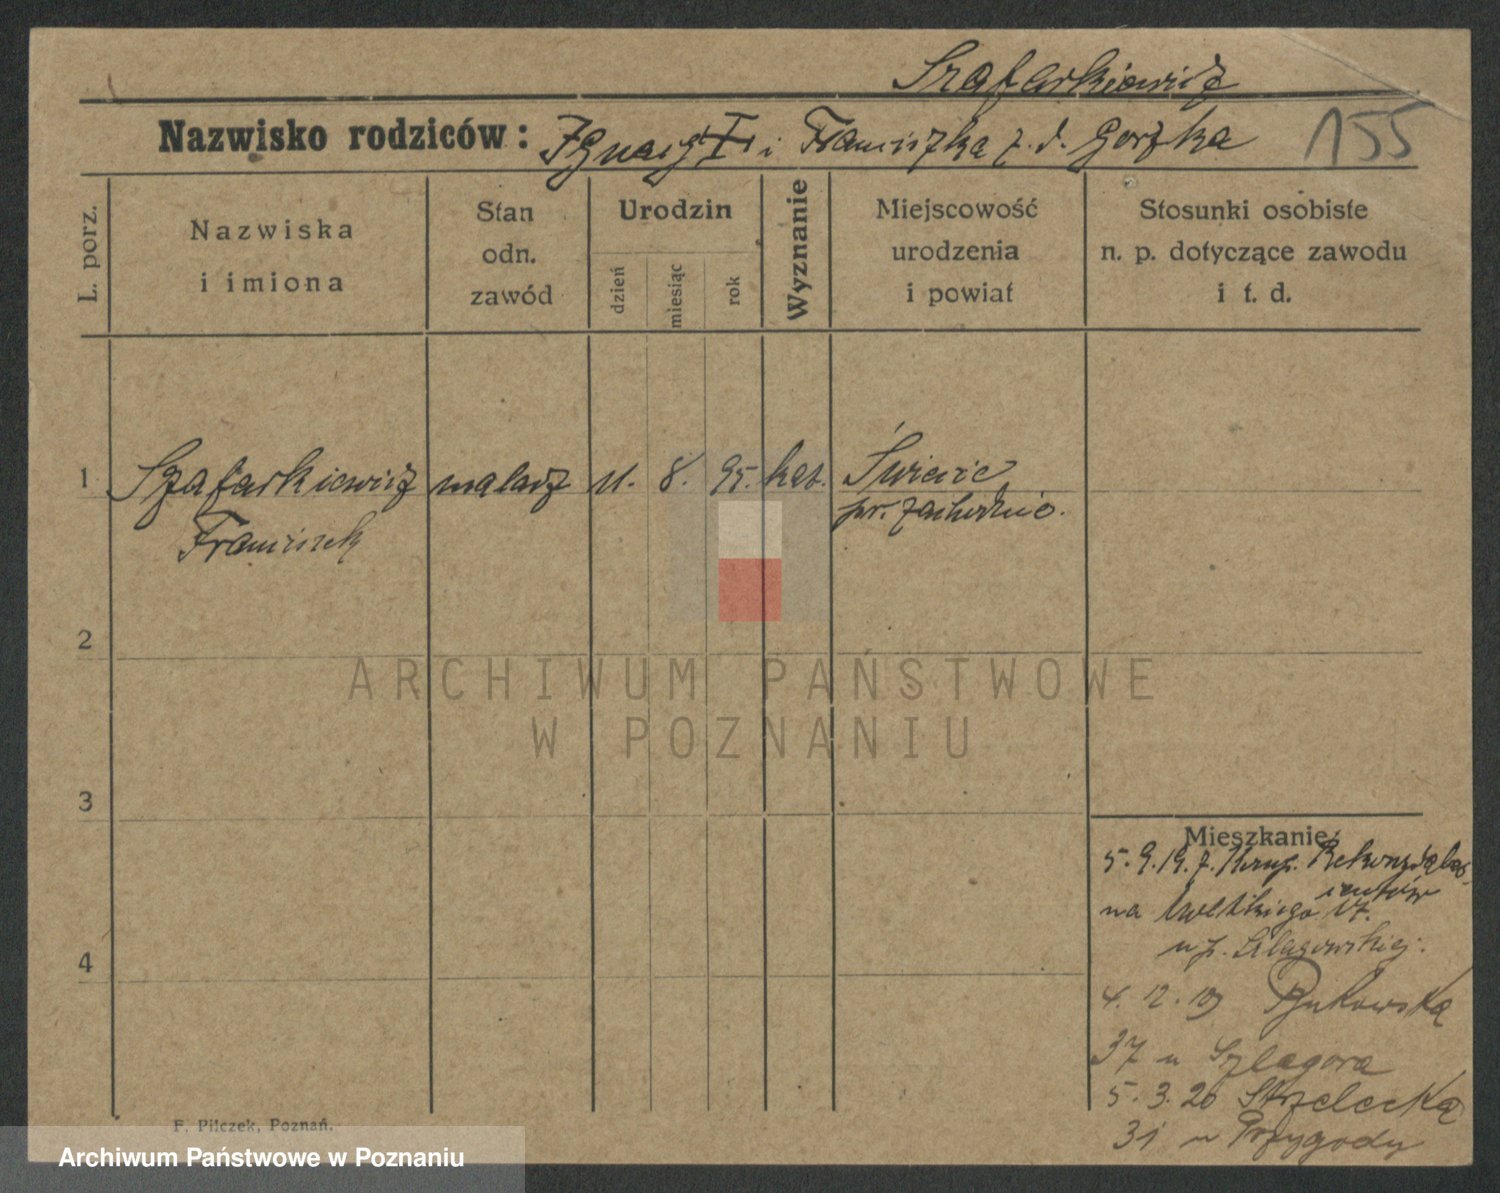 Szafarkiewicz
Nazwisko rodziców: Ignacy i Franciszka z. d. Gorzka
155
L. porz.
Nazwiska
i imiona
Stan
odn.
zawód
Urodzin
dzień
miesiąc
rok
Wyznanie
Miejscowość
urodzenia
i powiat
Stosunki osobiste
n. p. dotyczące zawodu
i t. d.
1 Szafarkiewicz malarz 11. 8. 95. kat.
Franciszek
pr. zachodnie.
2
ARCHIWUM PAŃSTWOWE
W POZNANIU
3
4
Mieszkanie:
5. 9. 19. z
na 17.
u p. Szlagowskiej.
4. 12. 19 Bukowska
37 u Szlagora
5. 3. 20 Strzelecka
31 u Przygody
F. Pilczek, Poznań.
Archiwum Państwowe w Poznaniu